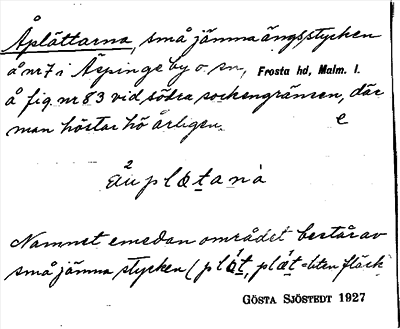 Åplättarna, små jämna ängsstycken
å nr 7 i Äspinge by o. sn, Frosta hd, Malm. l.
å fig. nr 83 vid södra sockengränsen, där
man höstar hö årligen. e
2
åu plætanà
Namnet emedan området består av
små jämna stycken (plǽt, plǽt = liten fläck
GÖSTA SJÖSTEDT 1927